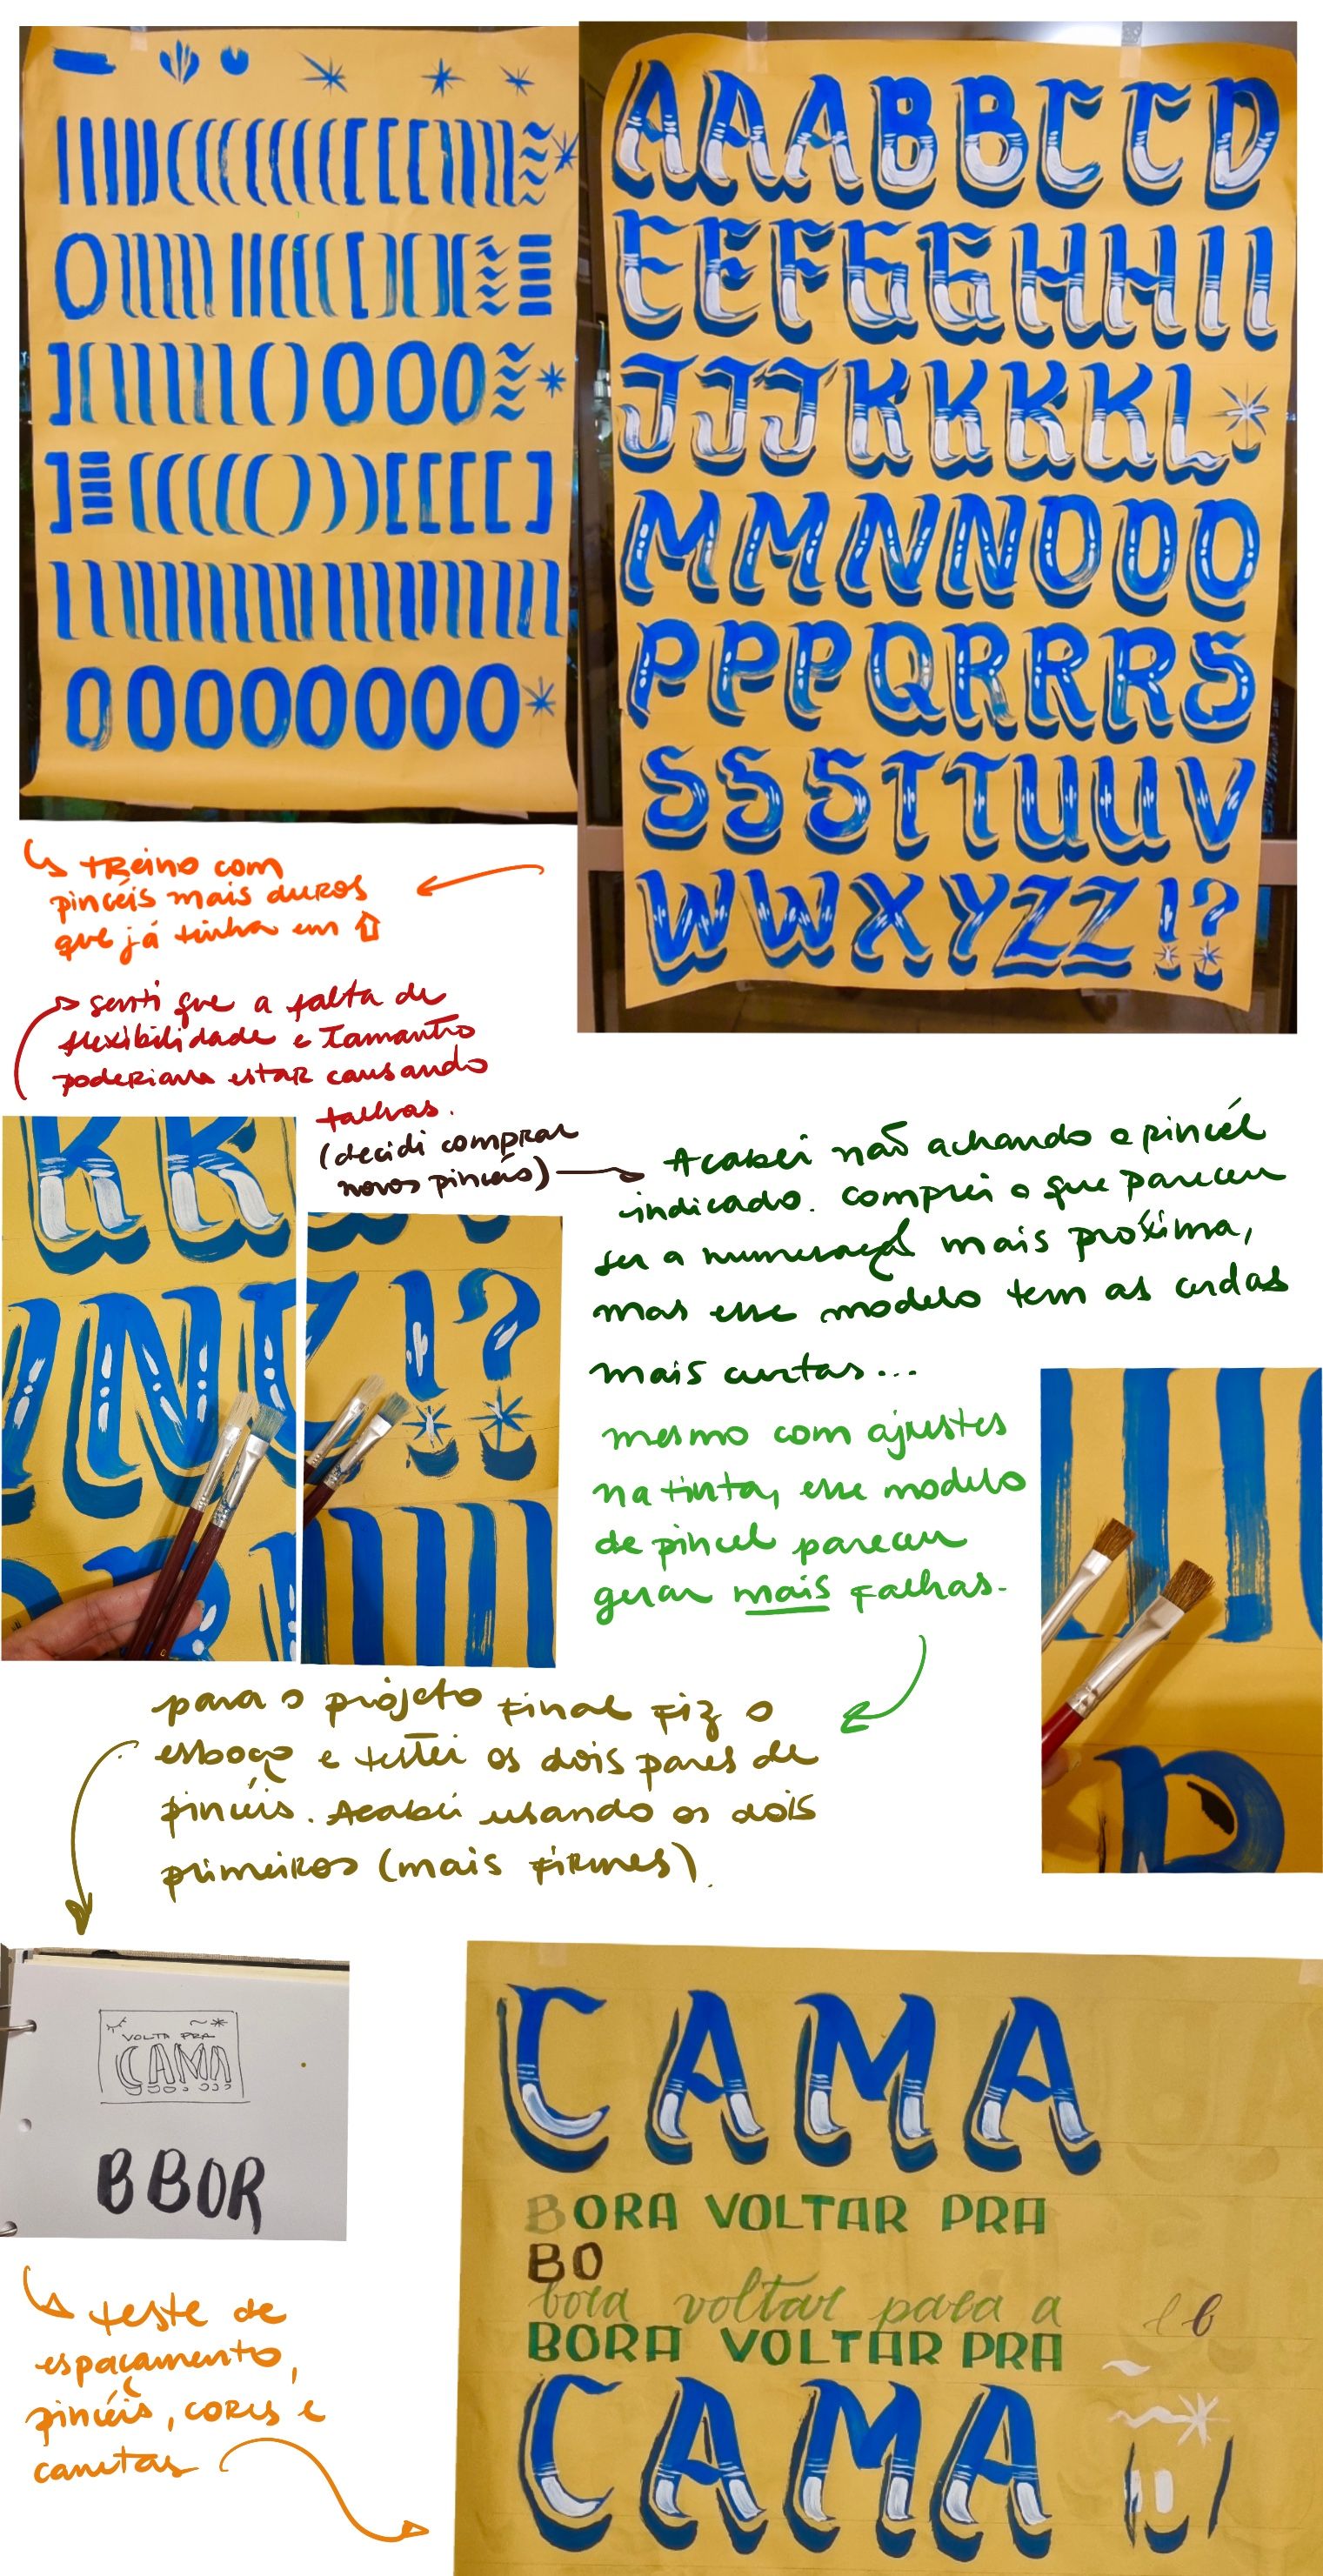 AAABBCCD
EEFGGHHII
JJJKKKKL
MMNNOOO
PPPQRRRS
SSSTTUUV
WWXYZZ!?
↳ treino com
pincéis mais duros
que já tinha em ⇧
senti que a falta de
flexibilidade e tamanho
poderiam estar causando
falhas.
(decidi comprar
novos pincéis)
Acabei não achando o pincél
indicado. comprei o que pareceu
ser a numeração mais próxima,
mas esse modelo tem as cerdas
mais curtas...
mesmo com ajustes
na tinta, esse modelo
de pincel pareceu
gerar mais falhas.
para o projeto final fiz o
esboço e testei os dois pares de
pincéis. Acabei usando os dois
primeiros (mais firmes).
VOLTA PRA
CAMA
BBOR
teste de
espaçamento,
pincéis, cores e
canetas
CAMA
BORA VOLTAR PRA
BO
bora voltar para a
BORA VOLTAR PRA
CAMA